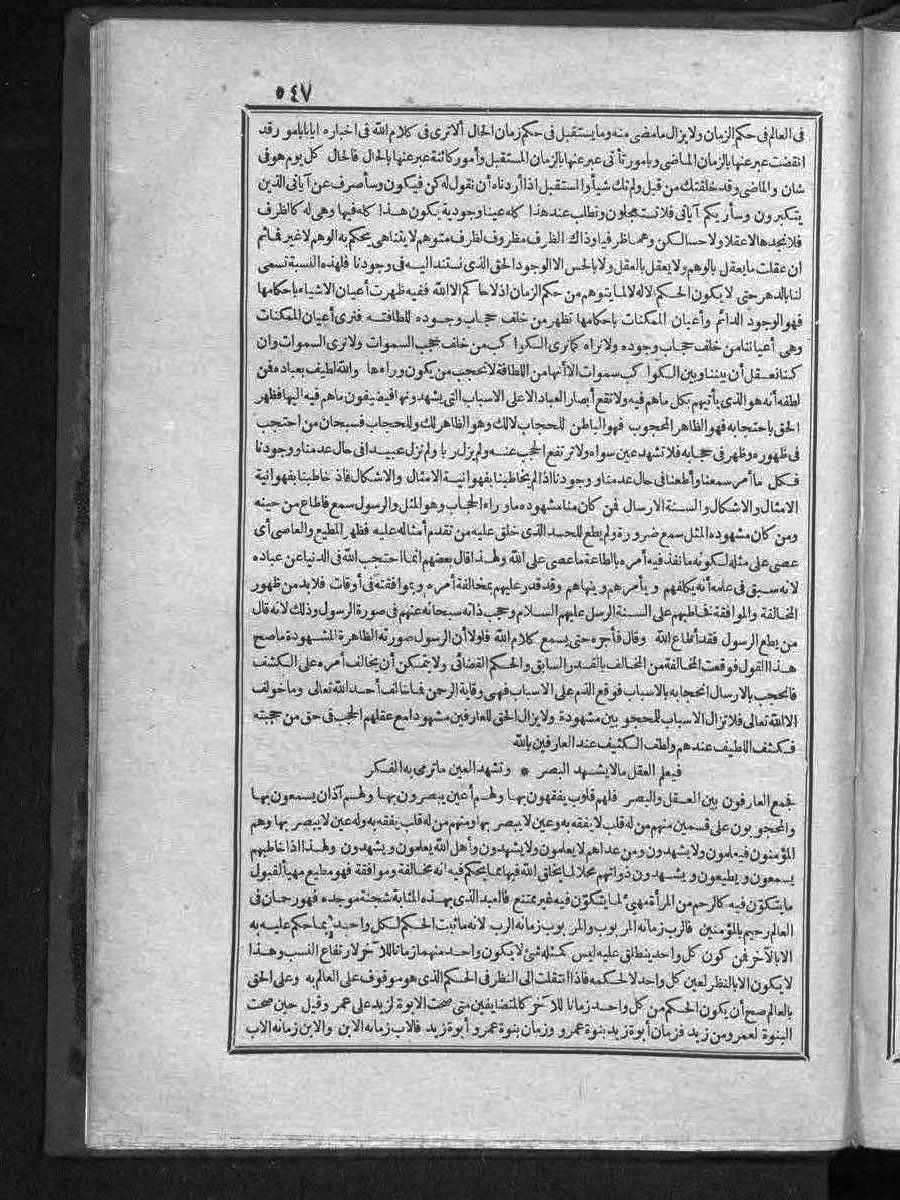 ٥٤٧
فى العالم فى حكم الزمان ولا يزال ما مضى منه وما يستقبل فى حكم زمان الحال ألا ترى فى كلام الله فى اخباره ايانا بامور قد
انقضت عبر عنها بالزمان الماضى وبامور تأتى عبر عنها بالزمان المستقبل وأمور كائنة عبر عنها بالحال فالحال كل يوم هو فى
شان والماضى وقد خلقتك من قبل ولم تك شيأ والمستقبل اذا أردناه أن نقول له كن فيكون وسأصرف عن آياتى الذين
يتكبرون وسأريكم آياتى فلا تستعجلون ونطلب عند هذا كله عينا وجودية يكون هذا كله فيها وهى له كالظرف
فلا نجدها لا عقلا ولا حسا لكن وهما ظرفيا وذاك الظرف مظروف لظرف متوهم لا يتناهى يحكم به الوهم لا غير فما ثم
ان عقلت ما يعقل بالوهم ولا يعقل بالعقل ولا بالحس الا الوجود الحق الذى نستند اليه فى وجودنا فلهذه النسبة تسمى
لنا بالدهر حتى لا يكون الحكم الا له لا لما يتوهم من حكم الزمان اذ لا حاكم الا الله ففيه ظهرت أعيان الاشياء باحكامها
فهو الوجود الدائم وأعيان الممكنات باحكامها تظهر من خلف حجاب وجوده للطافته فترى أعيان الممكنات
وهى أعياننا من خلف حجاب وجوده ولا نراه كما نرى الكواكب من خلف حجب السموات ولا نرى السموات وان
كنا نعقل أن بيننا وبين الكواكب سموات الا أنها من اللطافة لا تحجب من يكون وراءها والله لطيف بعباده فمن
لطفه أنه هو الذى يأتيهم بكل ما هم فيه ولا تقع أبصار العباد الا على الاسباب التى يشهدونها فيضيفون ما هم فيه اليها فظهر
الحق باحتجابه فهو الظاهر المحجوب فهو الباطن للحجاب لا لك وهو الظاهر لك وللحجاب فسبحان من احتجب
فى ظهوره وظهر فى حجابه فلا تشهد عين سواه ولا ترتفع الحجب عنه ولم يزل ربا ولم نزل عبيدا فى حال عدمنا ووجودنا
فكل ما أمر سمعنا وأطعنا فى حال عدمنا ووجودنا اذا لم يخاطبنا بفهوانية الامثال والاشكال فاذا خاطبنا بفهوانية
الامثال والاشكال والسنة الارسال فمن كان منا مشهوده ما وراء الحجاب وهو المثل والرسول سمع فاطاع من حينه
ومن كان مشهوده المثل سمع ضرورة ولم يطع للحسد الذى خلق عليه من تقدم أمثاله عليه فظهر المطيع والعاصى أى
عصى على مثله لكونه ما نفذ فيه أمره بالطاعة ما عصى على الله ولهذا قال بعضهم انما احتجب الله فى الدنيا عن عباده
لانه سبق فى علمه أنه يكلفهم ويأمرهم وينهاهم وقد قدر عليهم بمخالفة أمره وبموافقته فى أوقات فلا بد من ظهور
المخالفة والموافقة فخاطبهم على السنة الرسل عليهم السلام وحجب ذاته سبحانه عنهم فى صورة الرسول وذلك لانه قال
من يطع الرسول فقد أطاع الله وقال فأجره حتى يسمع كلام الله فلولا أن الرسول صورته الظاهرة المشهودة ما صح
هذا القول فوقعت المخالفة من المخالف بالقدر السابق والحكم القضائى ولا يتمكن أن يخالف أمره على الكشف
فانحجب بالارسال انحجابه بالاسباب فوقع الذم على الاسباب فهى وقاية الرحمن فما خالف أحد الله تعالى وما خولف
الا الله تعالى فلا تزال الاسباب للمحجوبين مشهودة ولا يزال الحق للعارفين مشهودا مع عقلهم الحجب فى حق من حجبته
فكشف اللطيف عندهم ولطف الكثيف عند العارفين بالله
فيعلم العقل ما لا يشهد البصر * وتشهد العين ما ترمى به الفكر
فجمع العارفون بين العقل والبصر فلهم قلوب يفقهون بها ولهم أعين يبصرون بها ولهم آذان يسمعون بها
والمحجوبون على قسمين منهم من له قلب لا يفقه به وعين لا يبصر بها ومنهم من له قلب يفقه به وله عين لا يبصر بها وهم
المؤمنون فيعلمون ولا يشهدون ومن عداهم لا يعلمون ولا يشهدون وأهل الله يعلمون ويشهدون ولهذا اذا خاطبهم
يسمعون ويطيعون ويشهدون ذواتهم محلا لما يخلق الله فيها مما يحكم فيه أنه مخالفة وموافقة فهو مطيع مهيأ لقبول
ما يتكون فيه كالرحم من المرأة مهيئ لما يتكون فيه غير ممتنع فالعبد الذى بهذه المثابة شجنة موجده فهو رحمان فى
العالم رحيم بالمؤمنين فالرب زمانه المربوب والمربوب زمانه الرب لانه ما ثبت الحكم لكل واحد بما حكم عليه به
الا بالآخر فمن كون كل واحد ينطلق عليه ليس كمثله شئ لا يكون واحد منهما زمانا للآخر لارتفاع النسب وهذا
لا يكون الا بالنظر لعين كل واحد لا لحكمه فاذا انتقلت الى النظر فى الحكم الذى هو موقوف على العالم به وعلى الحق
بالعالم صح أن يكون الحكم من كل واحد زمانا للآخر كالمتضايفين متى صحت الابوة لزيد على عمر وقيل حين صحت
البنوة لعمرو من زيد فزمان أبوة زيد بنوة عمرو وزمان بنوة عمرو أبوة زيد فالاب زمانه الابن والابن زمانه الاب